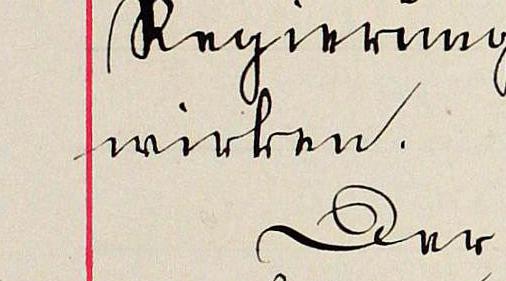 Regierung
wirken.
Der